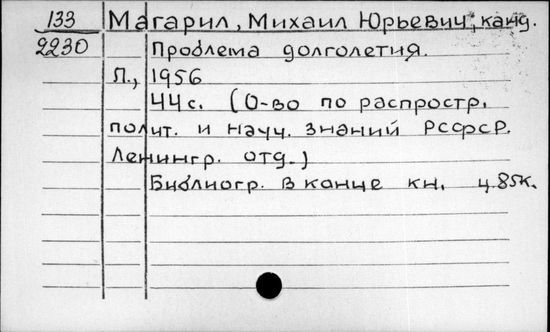 133 Магарил, Михаил Юрьевич, канд.
2230 Проблема долголетия.
Л., 1956
44 с. (О-во по распростр.
полит. и науч. знаний РСФСР.
Ленингр. отд.)
Библиогр. в конце кн. ц. 85к.